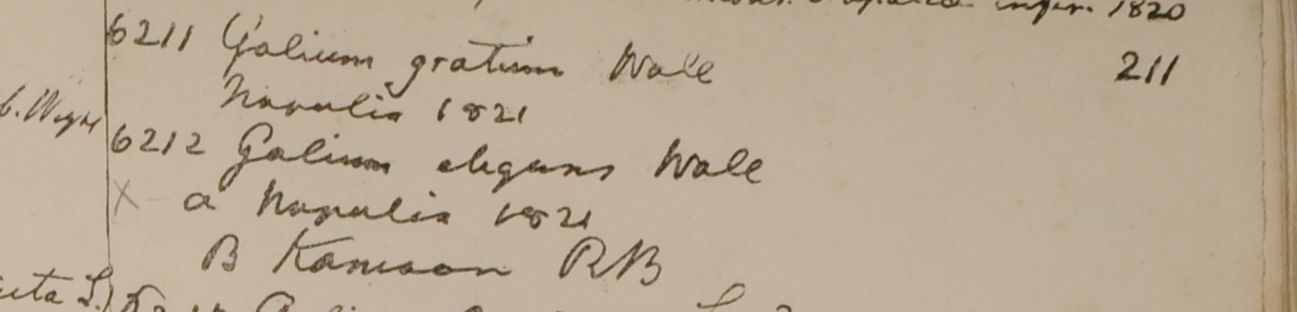 Napalia 1820
6211 Galium gratum Wall 211
Napalia 1821
6212 Galium elegans Wall
X a Napalia 1821
B Kamaon RB
L.)